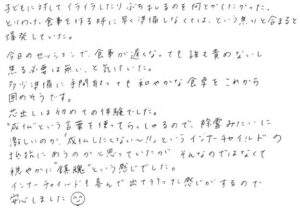 子どもに対してイライラしたりぶちまけるのを何とかしたかった。
とりわけ食事を作る時に早く準備しなくては、という焦りと合まると
爆発していた。
今日のセッションで、食事が遅くなっても誰も責めないし
焦る必要は無い、と気付いた。
多少準備に手間取っても和やかな食事をこれから
囲めそうです。
芯出しは初めての体験でした。
"成仏"という言葉を使ってらっしゃるので、除霊みたいに
激しいのか、成仏したくない〜!!というインナーチャイルドの
抵抗にあうのかと思っていたが そんなのではなくて
穏やかに鎮魂という感じでした。
インナーチャイルドも喜んで出て行った感じがするので
安心しました